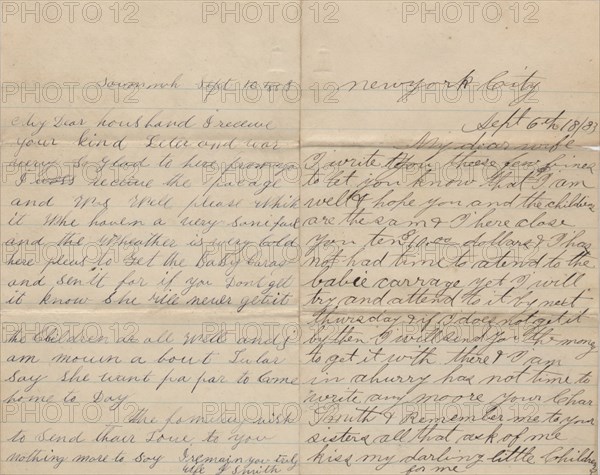 Sept 10
My Dear housband I receve
your kind Leter and war
very So glad to here from you
I receve the pacage
and Wos Well please With
it Whe haven a very
and the Wheather is very cold
here pleas to Get the Baby
and Sen't for if you Don't get
it know She Will never get it
the Children ar all Well and I
am a bout Tular
Say She want pa par to Come
home to Day
The familey wish
to Send thair Love to you
nothing more to Say I remain you truly
wife J Smith
New york City
Sept 6th 18/83
My dear wife
I write you theese few lines
to let you know that I am
well & hope you and the children
are the same & I here close
you ten $10.00 dollars & I has
not had time to atend to the
babie carrage yet I will
try and attend to it by next
thursday & if I does not get it
by then I will send you the money
to get it with there & I am
in a hurry has not time to
write any moore your Char
Smith & Remember me to your
sisters all that ask of me
kiss my darling little Children
for me
PHOTO 12